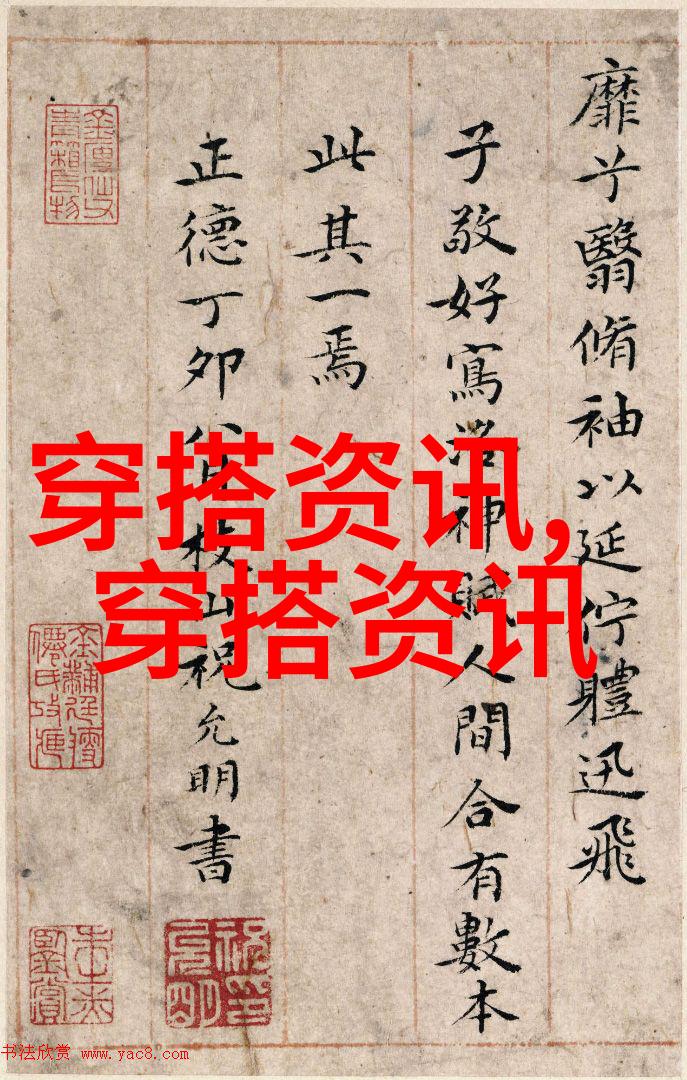 靡兮翳脩袖以延佇體迅飛
子敬好寫洛神賦人間合有數本
此其一焉
正德丁卯八月枝山祝允明書
穿搭资讯,
穿搭资讯
书法欣赏 www.yac8.com